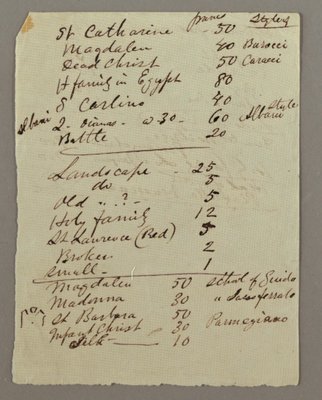 francs Style of
St Catharine - 50
Magdalen 40 Barocci
Dead Christ 50 Caracci
H family in Egypt 80
S Carlino 40
Albani 2 - Dianas - @ 30 - 60 Albani Style
Battle 20
Landscape - 25
do 5
Old " .. ? - 5
Holy Family 12
St Lawrence (Red) 5
Broken 2
Small - 1
Magdalen 50 School of Guido
Madonna 30 " Sassoferrato
St Barbara 50 Parmegiano
Infant Christ 30
Silk - 10